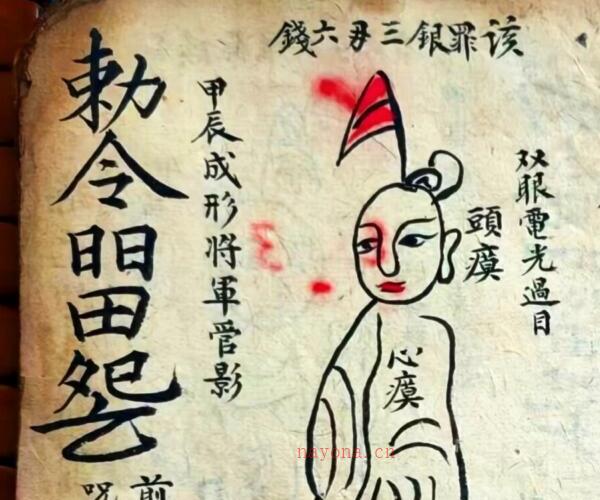 该罪銀三 六錢
双眼電光過目
頭瘼
心瘼
甲辰成形將軍管影
勅令
前
nayona.cn